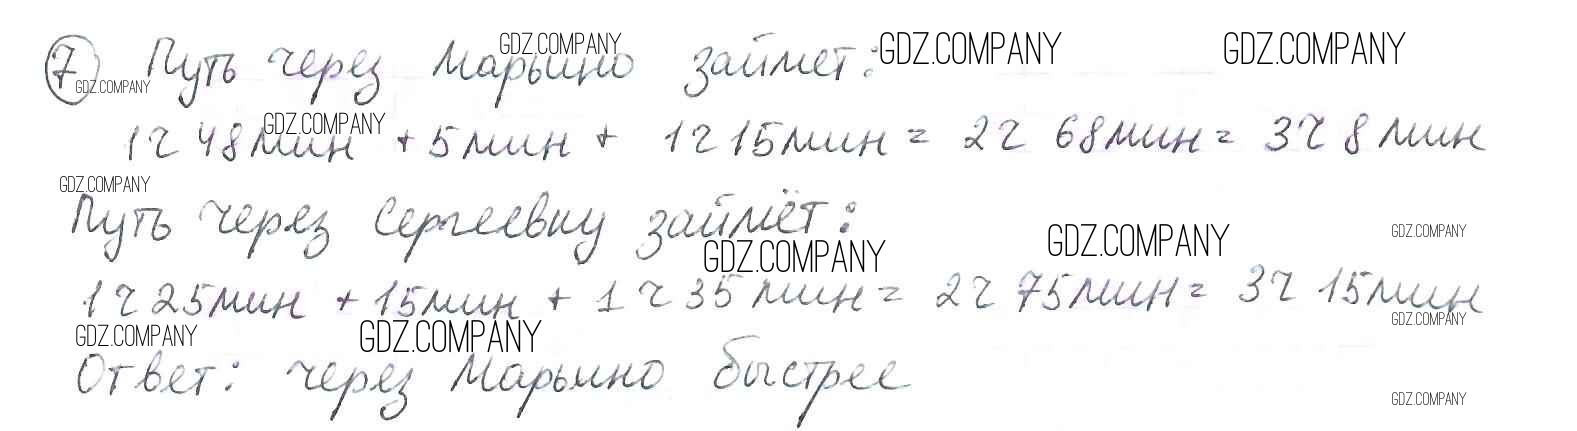 7 Путь через Марьино займет:
1ч 48мин + 5мин + 1ч 15мин = 2ч 68мин = 3ч 8мин
Путь через Сергеевку займёт:
1ч 25мин + 15мин + 1ч 35мин = 2ч 75мин = 3ч 15мин
Ответ: через Марьино быстрее
GDZ.COMPANY
GDZ.COMPANY
GDZ.COMPANY
GDZ.COMPANY
GDZ.COMPANY
GDZ.COMPANY
GDZ.COMPANY
GDZ.COMPANY
GDZ.COMPANY
GDZ.COMPANY
GDZ.COMPANY
GDZ.COMPANY
GDZ.COMPANY